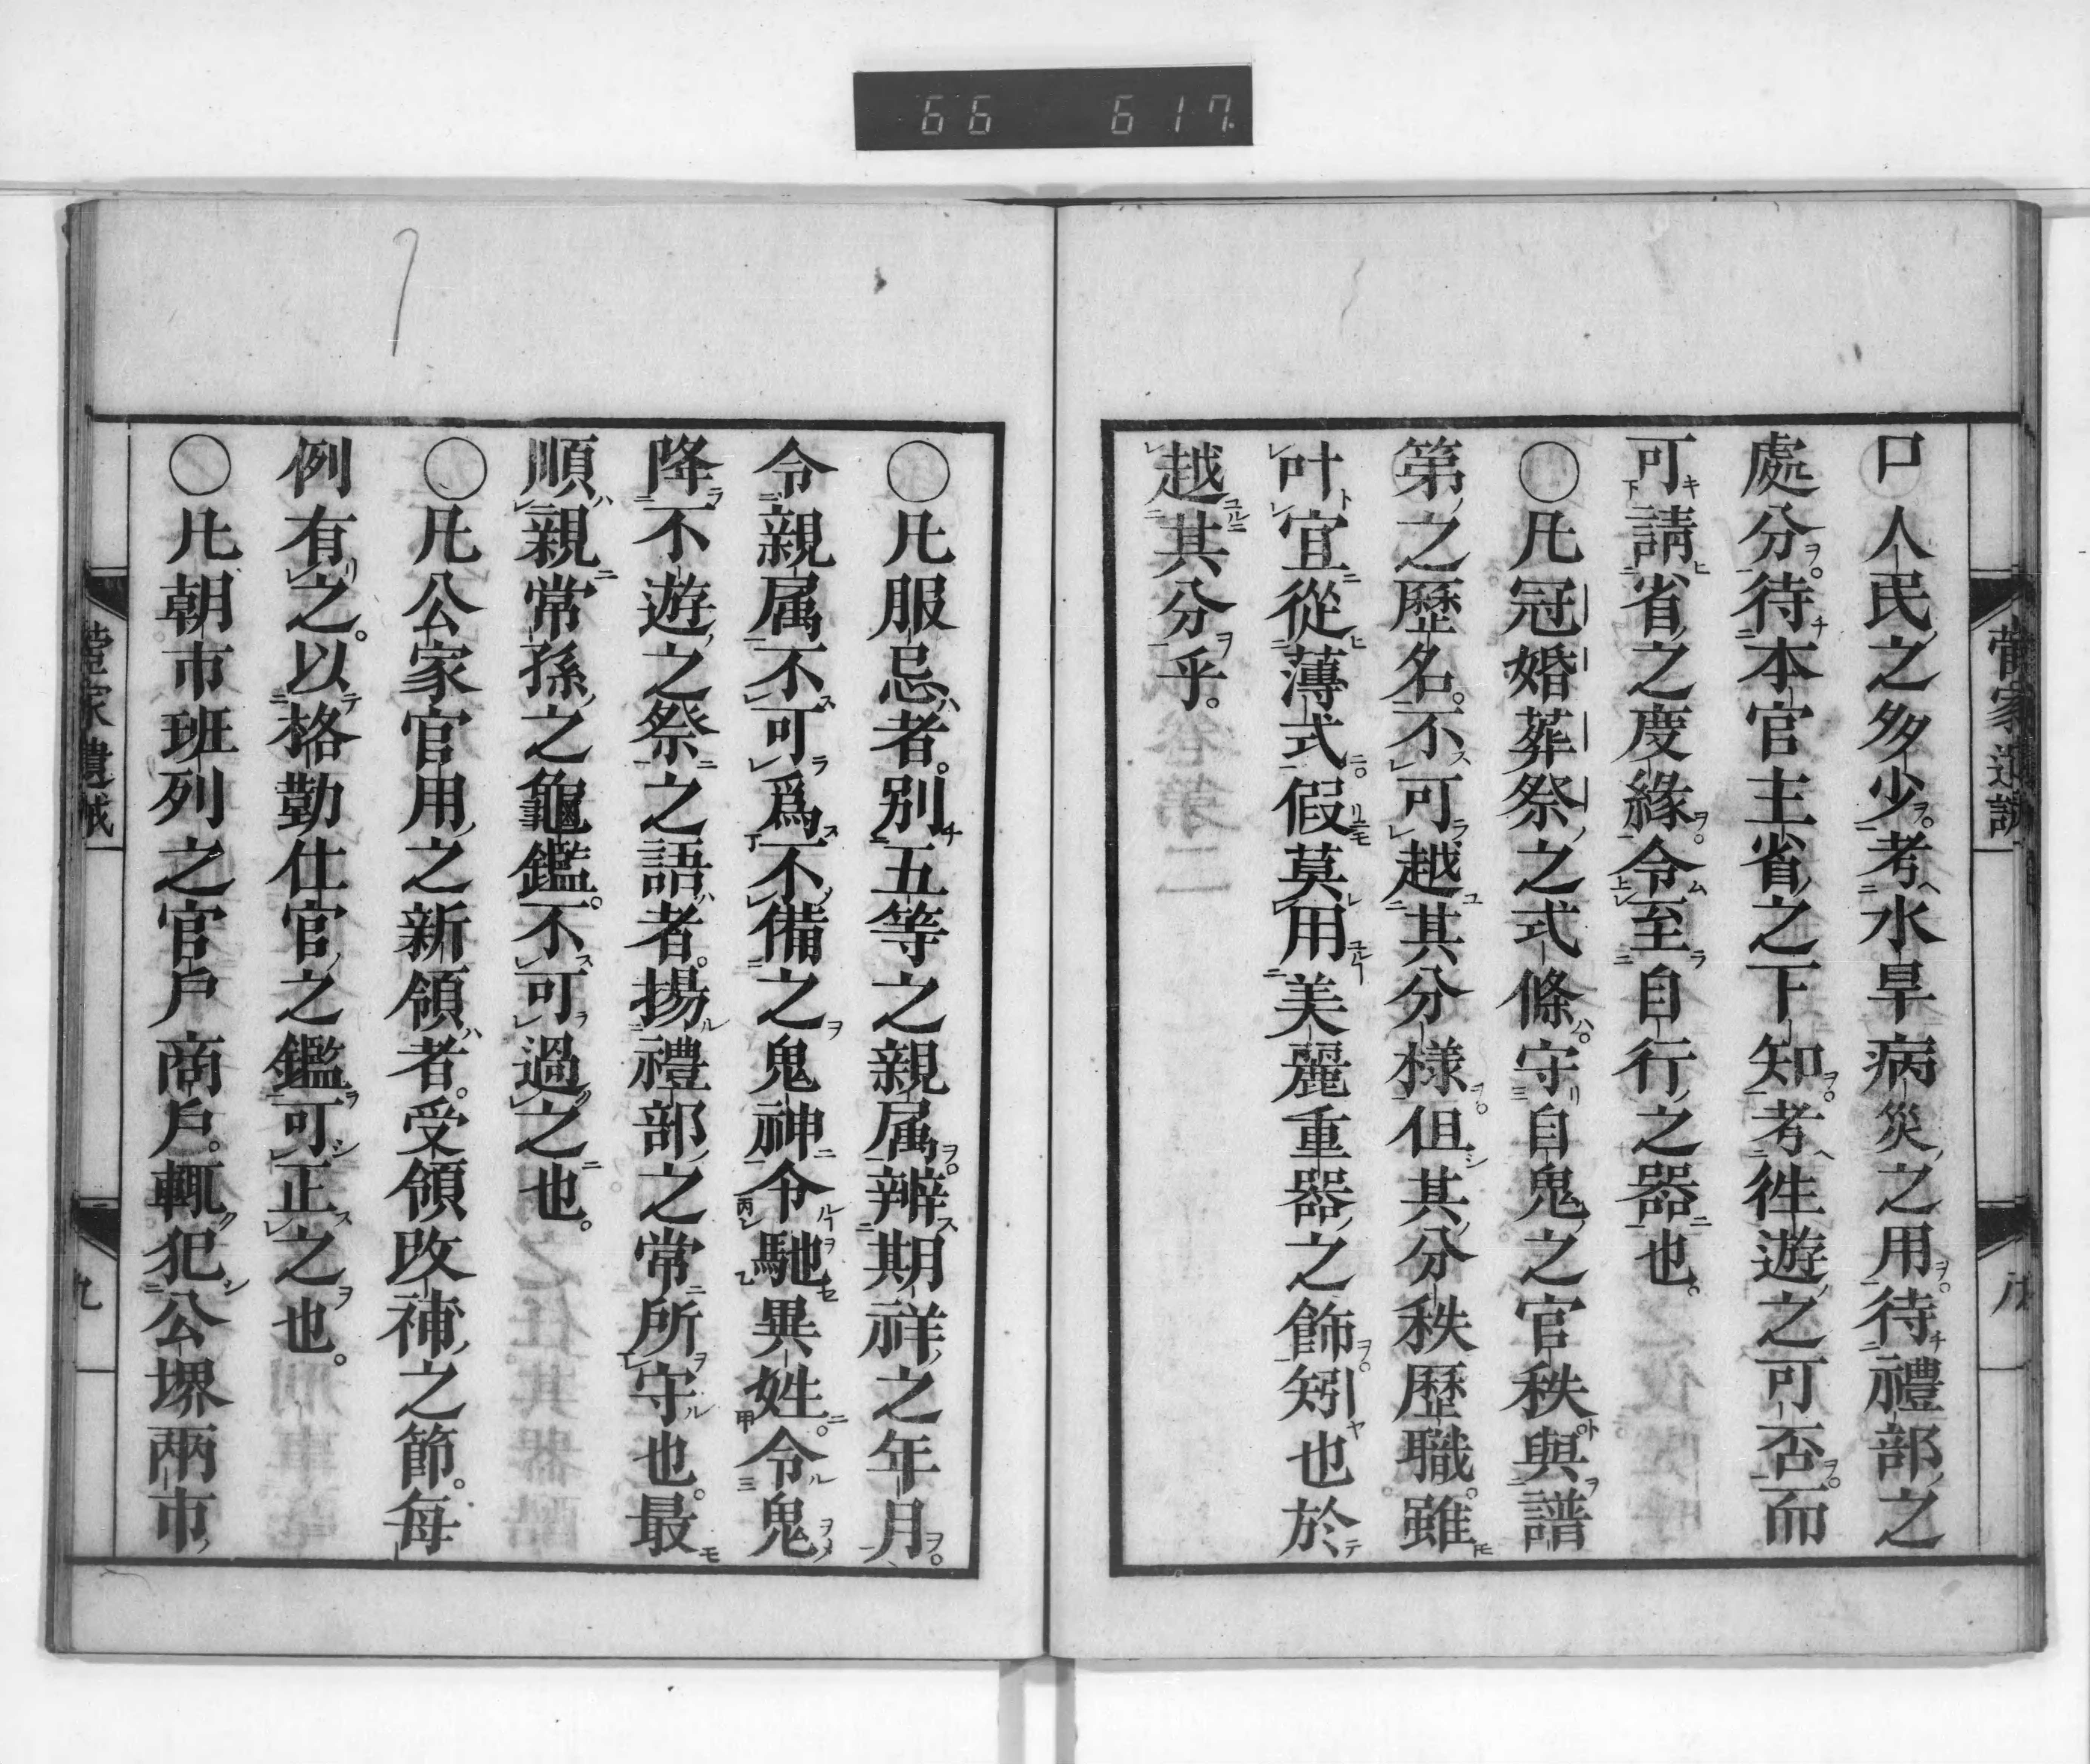 66 617.
口人民之多少。考水旱病災之用。待禮部之
處分。待本官主省之下知。考徃遊之可否。而
可請省之度緣。令至自行之器也。
○凡冠婚葬祭之式條。守自鬼之官秩。與譜
第之歷名。不可越其分樣。但其分秩歷職。雖
叶宜從薄式。假莫用美麗重器之飾。矧也於
越其分乎。
菅家遺誡
八
○凡服忌者。別五等之親属。辨期祥之年月。
令親属不可爲不備之鬼神。令馳異姓。令鬼
降不遊之祭之語者。揚禮部之常所守也。最
順親常孫之龜鑑。不可過之也。
○凡公家官用之新領者。受領改補之節。每
例有之。以格勤仕官之鑑可正之也。
○凡朝市班列之官戶商戶。輒犯公堺兩市
菅家遺誡
九